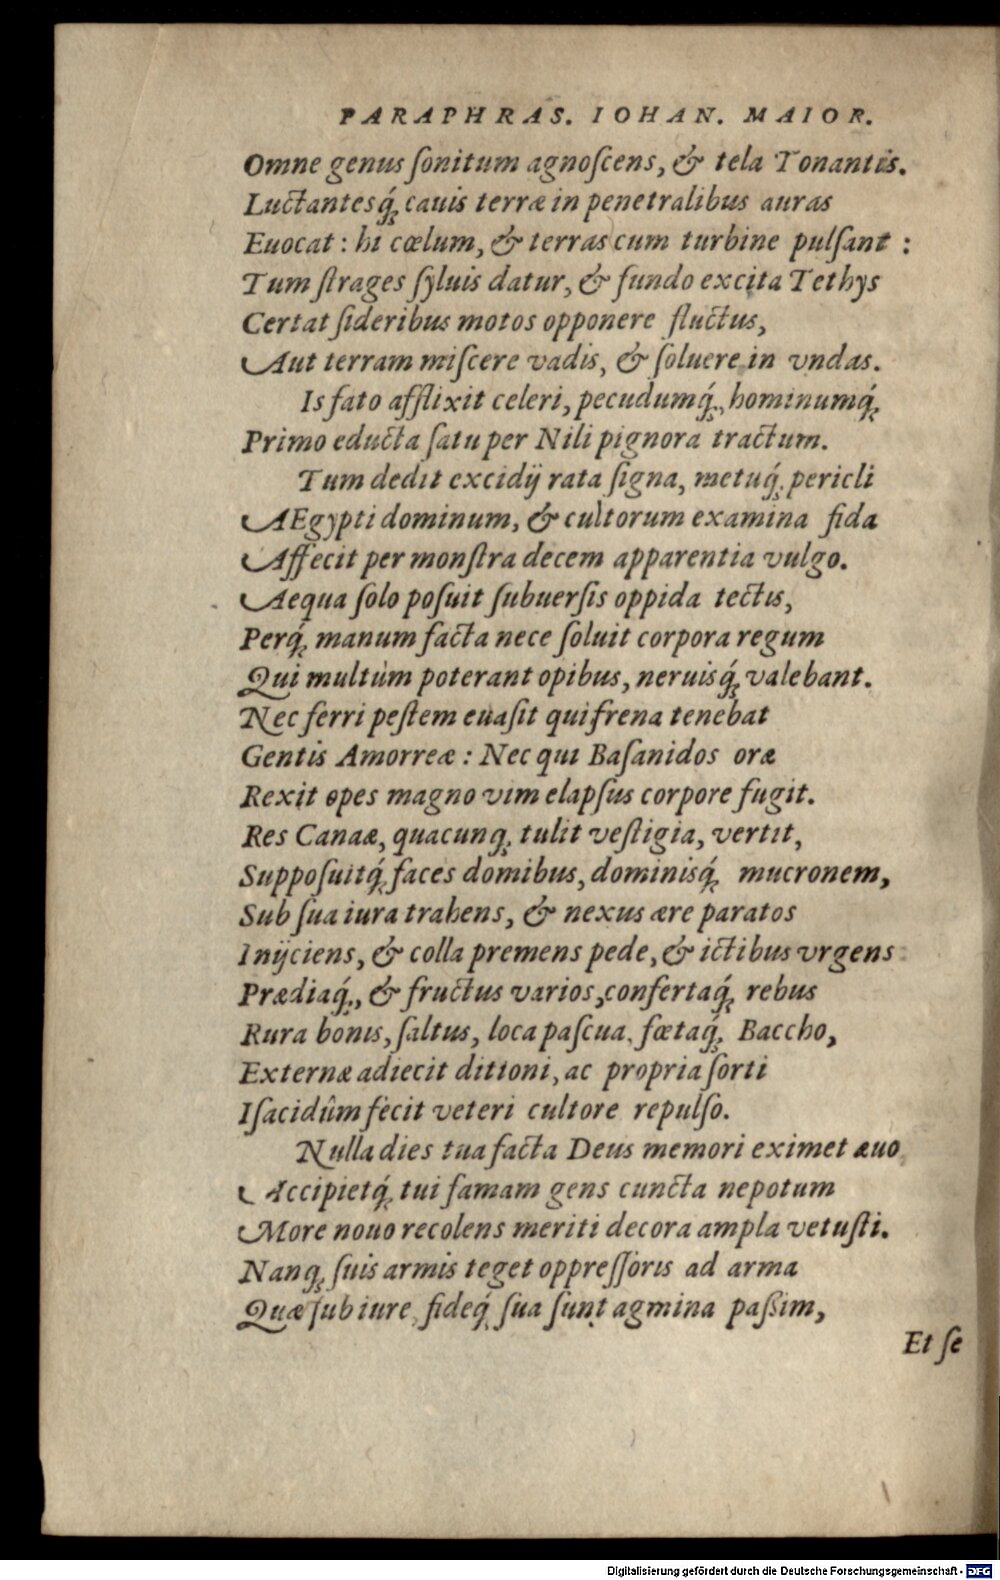 PARAPHRAS. IOHAN. MAIOR.
Omne genus ſonitum agnoſcens, & tela Tonantis.
Luctantesq́; cauis terræ in penetralibus auras
Euocat: hi cœlum, & terras cum turbine pulſant:
Tum ſtrages ſyluis datur, & fundo excita Tethys
Certat ſideribus motos opponere fluctus,
Aut terram miſcere vadis, & ſoluere in vndas.
Is fato afflixit celeri, pecudumq́;, hominumq́;
Primo educta ſatu per Nili pignora tractum.
Tum dedit excidij rata ſigna, metuq́; pericli
AEgypti dominum, & cultorum examina fida
Affecit per monſtra decem apparentia vulgo.
Aequa ſolo poſuit ſubuerſis oppida tectis,
Perq́; manum facta nece ſoluit corpora regum
Qui multùm poterant opibus, neruisq́; valebant.
Nec ferri peſtem euaſit qui frena tenebat
Gentis Amorreæ: Nec qui Baſanidos oræ
Rexit opes magno vim elapſus corpore fugit.
Res Canaæ, quacunq; tulit veſtigia, vertit,
Suppoſuitq́; faces domibus, dominisq́; mucronem,
Sub ſua iura trahens, & nexus ære paratos
Inijciens, & colla premens pede, & ictibus vrgens
Prædiaq́;, & fructus varios, confertaq́; rebus
Rura bonis, ſaltus, loca paſcua, fœtaq́; Baccho,
Externæ adiecit ditioni, ac propria ſorti
Iſacidûm fecit veteri cultore repulſo.
Nulla dies tua facta Deus memori eximet æuo
Accipietq́; tui famam gens cuncta nepotum
More nouo recolens meriti decora ampla vetuſti.
Nanq; ſuis armis teget oppreſſoris ad arma
Quæ ſub iure, fideq́; ſua ſunt agmina paßim,
Et ſe
Digitalisierung gefördert durch die Deutsche Forschungsgemeinschaft - DFG